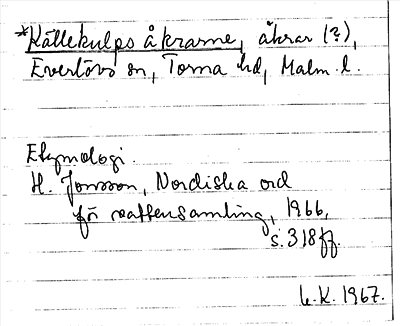 *Källekulps åkrarne, åkrar (?),
Everlövs sn, Torna hd, Malm. l.
Etymologi.
H. Jonsson, Nordiska ord
för vattensamling, 1966,
s. 318 ff.
L.K. 1967.